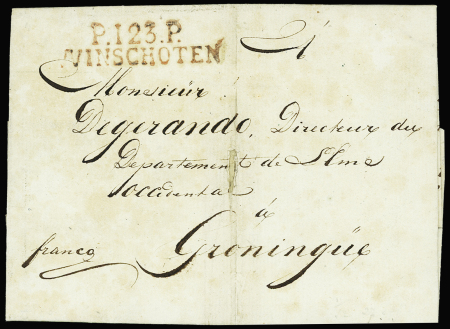 P.123.P.
WINSCHOTEN
A
Monsieur
Degerando, Directeur du
Departement de l'Ems
occidental
à
Groningüe
franco